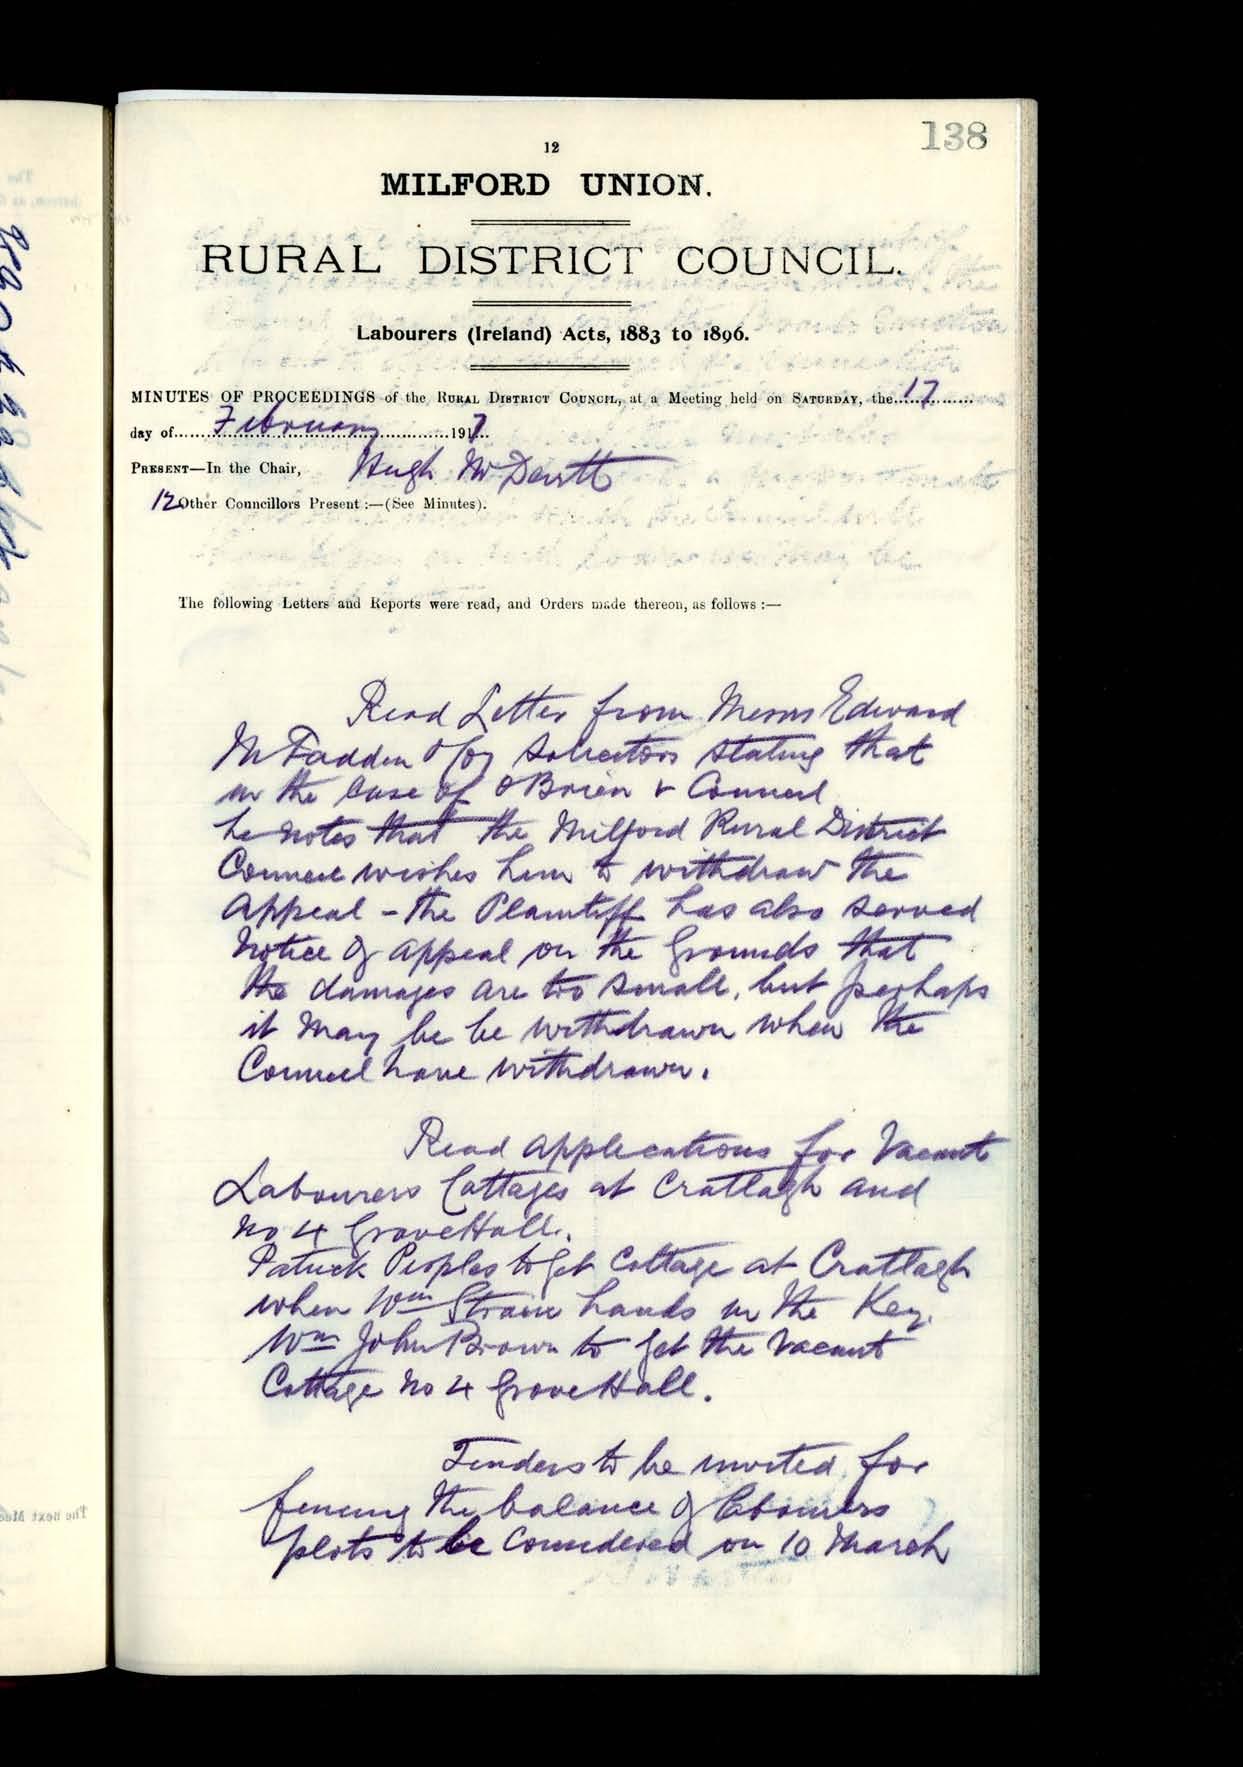 138
12
MILFORD UNION.
RURAL DISTRICT COUNCIL.
Labourers (Ireland) Acts, 1883 to 1896.
MINUTES OF PROCEEDINGS of the RURAL DISTRICT COUNCIL, at a Meeting held on SATURDAY, the 17
day of February 1917
PRESENT—In the Chair, Hugh McDevitt
12 Other Councillors Present :—(See Minutes).
The following Letters and Reports were read, and Orders made thereon, as follows :—
Read Letter from Messrs Edward
McFadden & Coy Solicitors stating that
in the case of OBrien v Council
he notes that the Milford Rural District
Council wishes him to withdraw the
Appeal - the Plaintiff has also served
Notice of appeal on the grounds that
the damages are too small, but perhaps
it may be be withdrawn when the
Council have withdrawn.
Read applications for Vacant
Labourers Cottages at Cratlagh and
No 4 GroveHall.
Patrick Peoples to get Cottage at Cratlagh
when Wm Strain hands in the Key.
Wm John Brown to get the Vacant
Cottage No 4 GroveHall.
Tenders to be invited for
fencing the balance of labourers
plots to be considered on 10 March
The next Mee